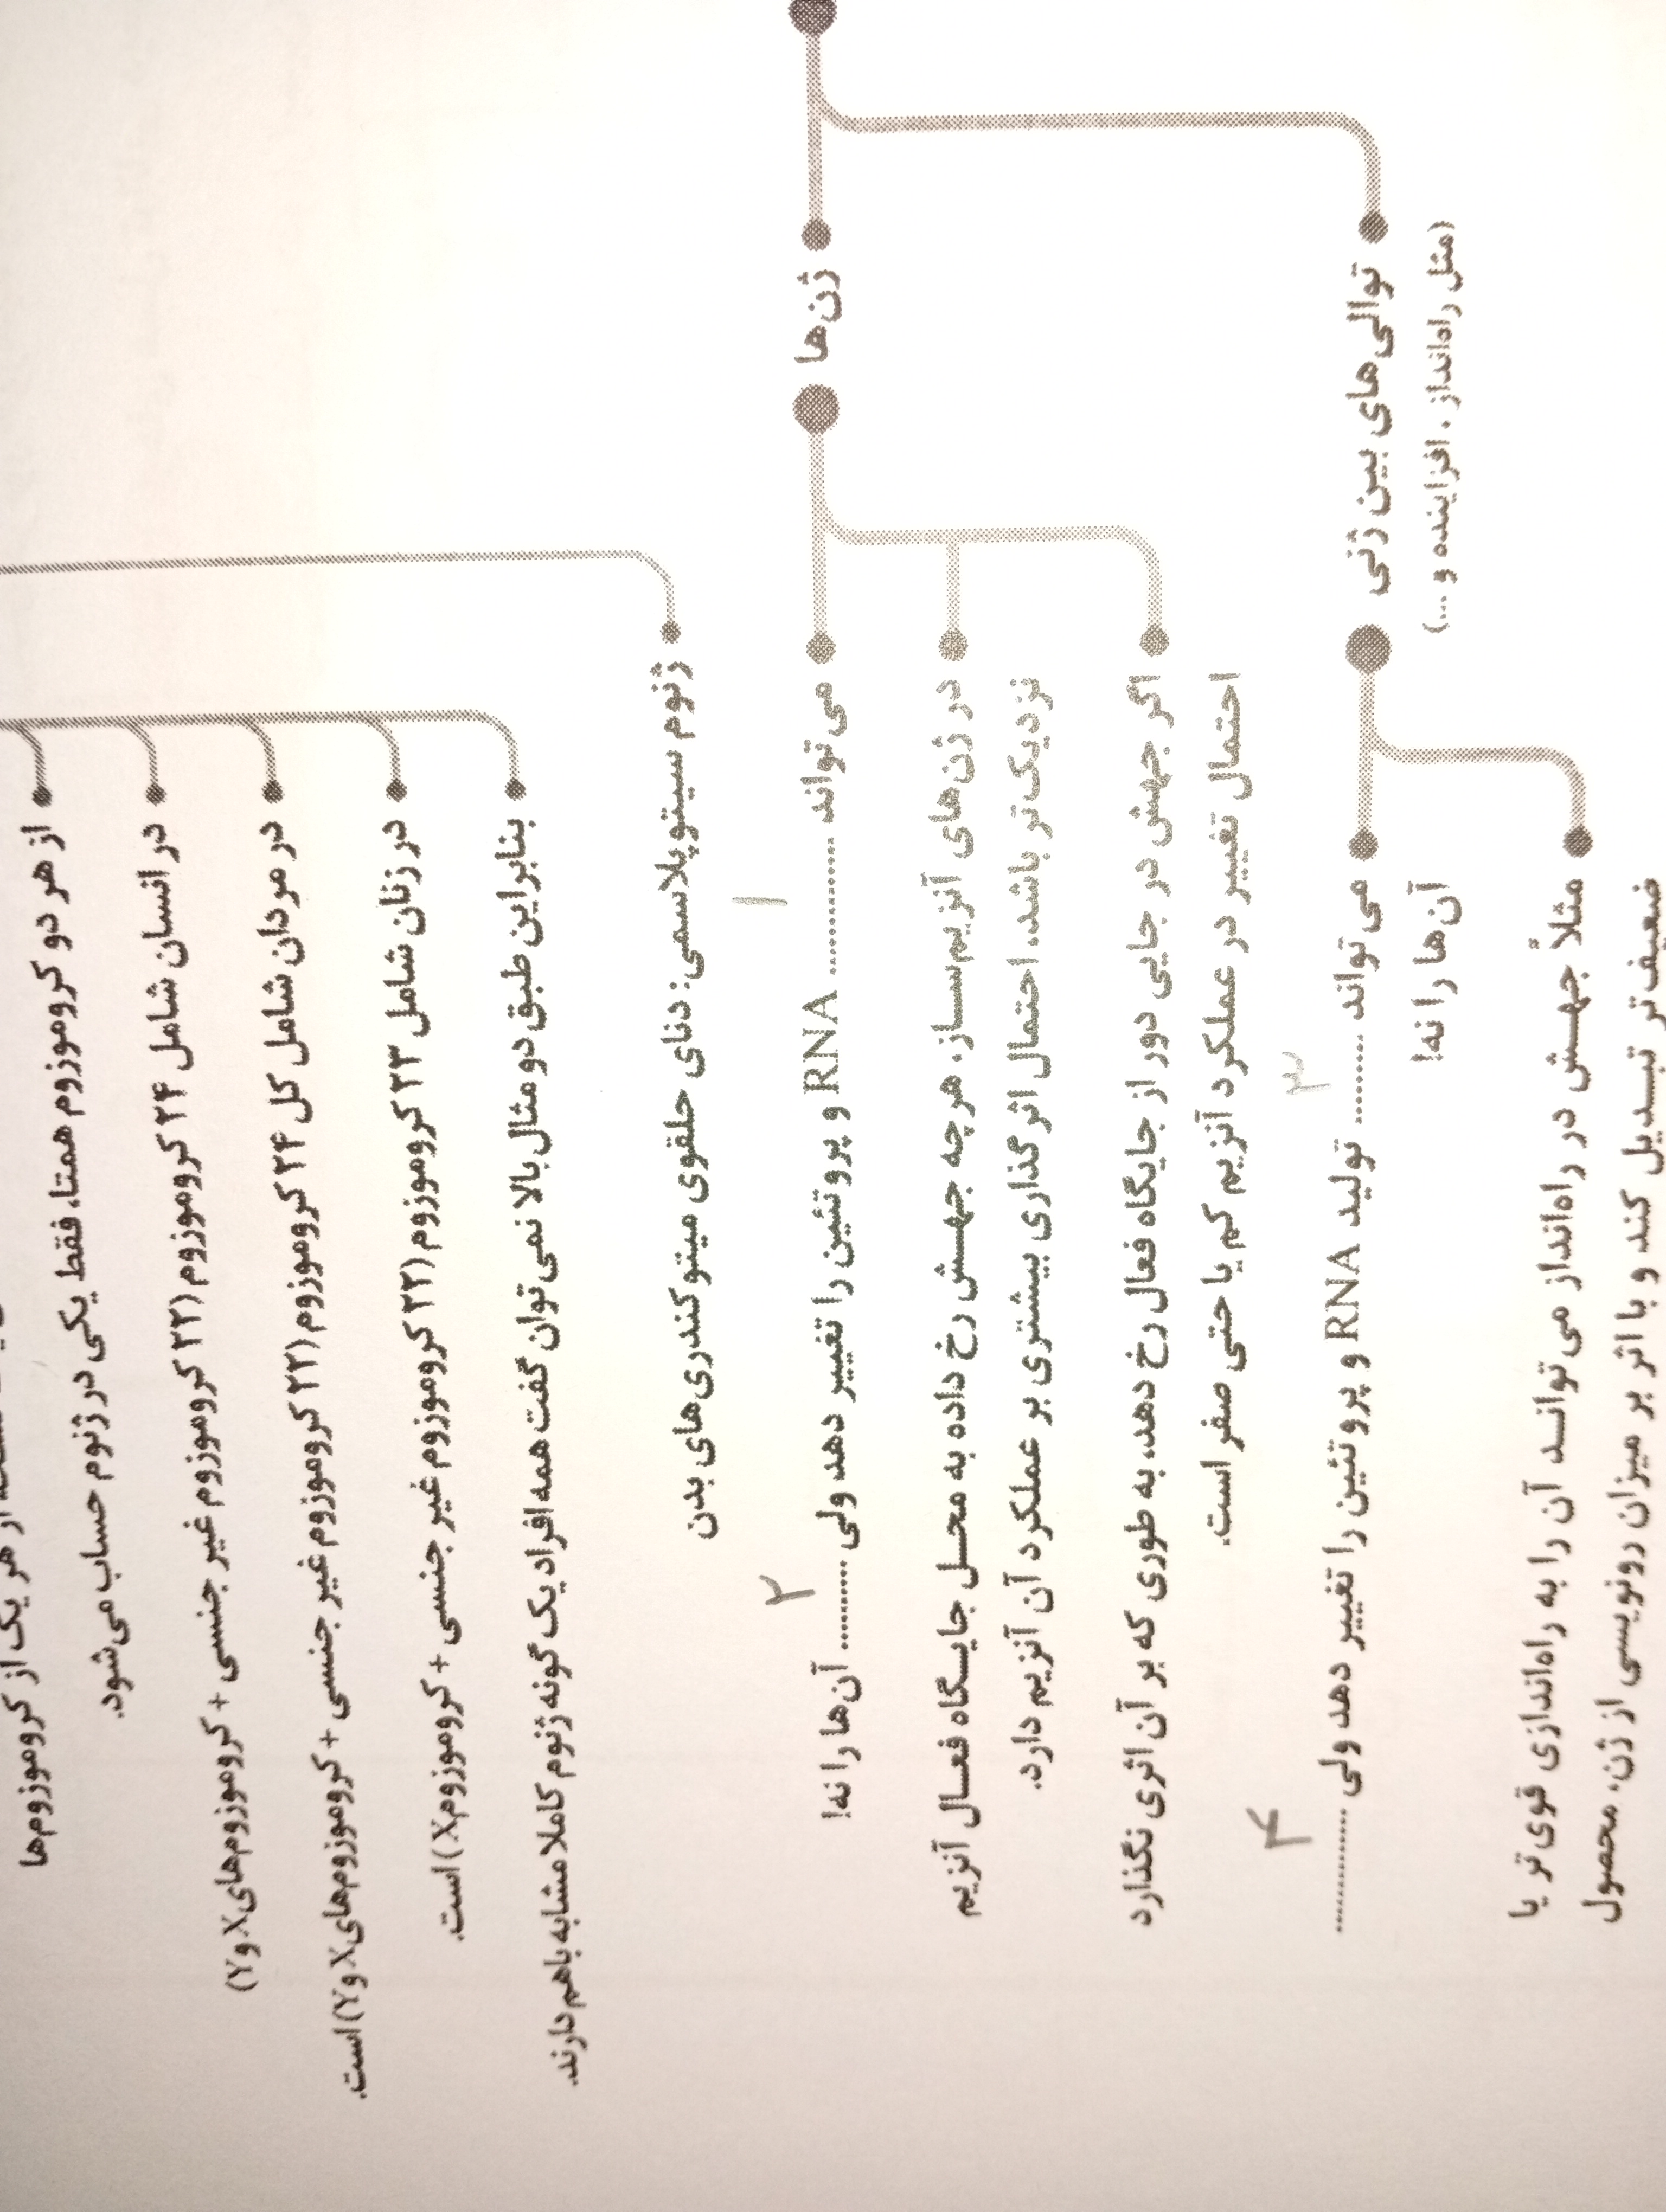 هر یک از کروموزوم‌ها
از هر دو کروموزوم همتا، فقط یکی در ژنوم حساب می‌شود.
در انسان شامل ۲۴ کروموزوم (۲۲ کروموزوم غیر جنسی + کروموزوم‌های X و Y)
در مردان شامل کل ۲۴ کروموزوم (۲۲ کروموزوم غیر جنسی + کروموزوم‌های X و Y) است.
در زنان شامل ۲۳ کروموزوم (۲۲ کروموزوم غیر جنسی + کروموزوم X) است.
بنابراین طبق دو مثال بالا نمی‌توان گفت همه افراد یک گونه ژنوم کاملا مشابه باهم دارند.
ژنوم سیتوپلاسمی: دنای حلقوی میتوکندری‌های بدن
ژن‌ها
۱
می‌تواند ............ RNA و پروتئین را تغییر دهد ولی ..........
۲
آن‌ها را نه!
در ژن‌های آنزیم‌ساز، هرچه جهش رخ داده به محل جایگاه فعال آنزیم
نزدیک‌تر باشد، احتمال اثرگذاری بیشتری بر عملکرد آن آنزیم دارد.
اگر جهش در جایی دور از جایگاه فعال رخ دهد، به طوری که بر آن اثری نگذارد
احتمال تغییر در عملکرد آنزیم کم یا حتی صفر است.
توالی‌های بین ژنی
(مثل راه‌انداز، افزاینده و ...)
۳
می‌تواند .......... تولید RNA و پروتئین را تغییر دهد ولی ..............
۴
آن‌ها را نه!
مثلاً جهش در راه‌انداز می‌تواند آن را به راه‌اندازی قوی‌تر یا
ضعیف‌تر تبدیل کند و با اثر بر میزان رونویسی از ژن، محصول